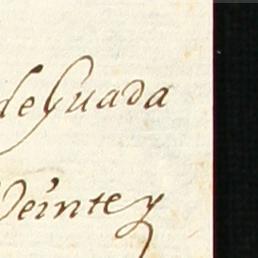 de Guada
Veinte y